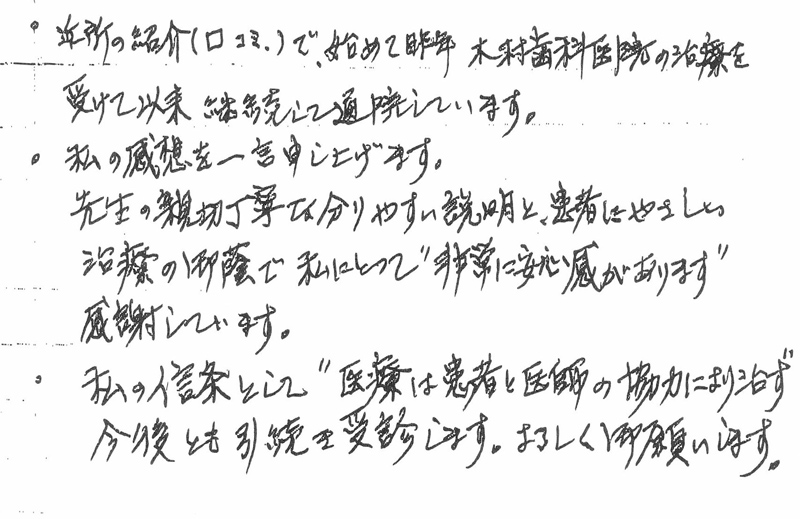 ・近所の紹介(口コミ.)で、始めて昨年 木村歯科医院の治療を
受けて以来 継続して通院しています。
・私の感想を一言申し上げます。
先生の親切丁寧な分りやすい説明と、患者にやさしい
治療の御蔭で 私にとって"非常に安心感があります"
感謝しています。
・私の信条として"医療は患者と医師の協力により治す"
今後とも引続き受診します。よろしく御願いします。